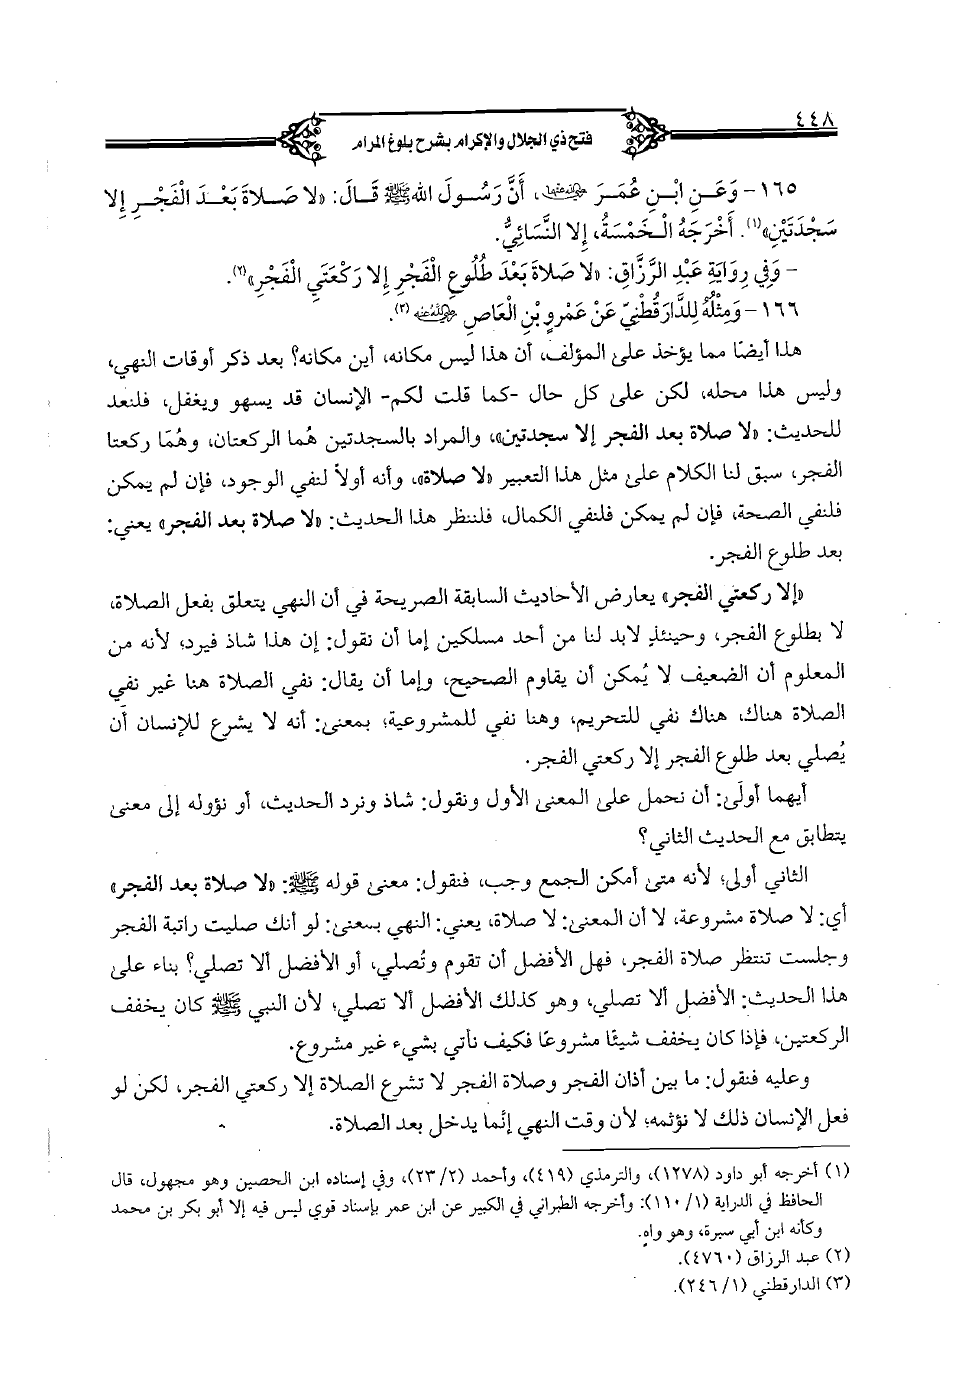 ٤٤٨
فتح ذي الجلال والإكرام بشرح بلوغ المرام
١٦٥- وَعَنِ ابْنِ عُمَرَ رضي الله عنهما، أَنَّ رَسُولَ اللهِ ﷺ قَالَ: «لا صَلاةَ بَعْدَ الْفَجْرِ إِلا
سَجْدَتَيْنِ»(١). أَخْرَجَهُ الْخَمْسَةُ، إِلا النَّسَائِيُّ.
- وَفِي رِوَايَةِ عَبْدِ الرَّزَّاقِ: «لا صَلاةَ بَعْدَ طُلُوعِ الْفَجْرِ إِلا رَكْعَتَيِ الْفَجْرِ»(٢).
١٦٦- وَمِثْلُهُ لِلدَّارَقُطْنِيّ عَنْ عَمْرِو بْنِ الْعَاصِ رضي الله عنه(٣).
هذا أيضًا مما يؤخذ على المؤلف، أن هذا ليس مكانه، أين مكانه؟ بعد ذكر أوقات النهي،
وليس هذا محله، لكن على كل حال -كما قلت لكم- الإنسان قد يسهو ويغفل، فلنعد
للحديث: «لا صلاة بعد الفجر إلا سجدتين»، والمراد بالسجدتين هُما الركعتان، وهُمَا ركعتا
الفجر، سبق لنا الكلام على مثل هذا التعبير «لا صلاة»، وأنه أولاً لنفي الوجود، فإن لم يمكن
فلنفي الصحة، فإن لم يمكن فلنفي الكمال، فلننظر هذا الحديث: «لا صلاة بعد الفجر» يعني:
بعد طلوع الفجر.
«إلا ركعتي الفجر» يعارض الأحاديث السابقة الصريحة في أن النهي يتعلق بفعل الصلاة،
لا بطلوع الفجر، وحينئذٍ لابد لنا من أحد مسلكين إما أن نقول: إن هذا شاذ فيرد؛ لأنه من
المعلوم أن الضعيف لا يُمكن أن يقاوم الصحيح، وإما أن يقال: نفي الصلاة هنا غير نفي
الصلاة هناك، هناك نفي للتحريم، وهنا نفي للمشروعية؛ بمعنى: أنه لا يشرع للإنسان أن
يُصلي بعد طلوع الفجر إلا ركعتي الفجر.
أيهما أولَى: أن نحمل على المعنى الأول ونقول: شاذ ونرد الحديث، أو نؤوله إلى معنى
يتطابق مع الحديث الثاني؟
الثاني أولى؛ لأنه متى أمكن الجمع وجب، فنقول: معنى قوله ﷺ: «لا صلاة بعد الفجر»
أي: لا صلاة مشروعة، لا أن المعنى: لا صلاة، يعني: النهي بمعنى: لو أنك صليت راتبة الفجر
وجلست تنتظر صلاة الفجر، فهل الأفضل أن تقوم وتُصلي، أو الأفضل ألا تصلي؟ بناء على
هذا الحديث: الأفضل ألا تصلي، وهو كذلك الأفضل ألا تصلي؛ لأن النبي ﷺ كان يخفف
الركعتين، فإذا كان يخفف شيئًا مشروعًا فكيف نأتي بشيء غير مشروع.
وعليه فنقول: ما بين أذان الفجر وصلاة الفجر لا تشرع الصلاة إلا ركعتي الفجر، لكن لو
فعل الإنسان ذلك لا نؤثمه؛ لأن وقت النهي إنَّما يدخل بعد الصلاة.
(١) أخرجه أبو داود (١٢٧٨)، والترمذي (٤١٩)، وأحمد (٢/ ٢٣)، وفي إسناده ابن الحصين وهو مجهول، قال
الحافظ في الدراية (١/ ١١٠): وأخرجه الطبراني في الكبير عن ابن عمر بإسناد قوي ليس فيه إلا أبو بكر بن محمد
وكأنه ابن أبي سبرة، وهو واهٍ.
(٢) عبد الرزاق (٤٧٦٠).
(٣) الدارقطني (١/ ٢٤٦).